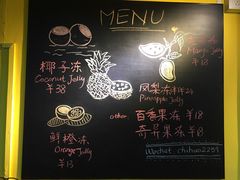 MENU
椰子冻
Coconut Jelly
¥38
Mango Jelly
¥18
凤梨冻
Pineapple Jelly
鲜橙冻
Orange Jelly
¥13
other
百香果冻 ¥18
奇异果冻 ¥18
Wechat: chihuo2259